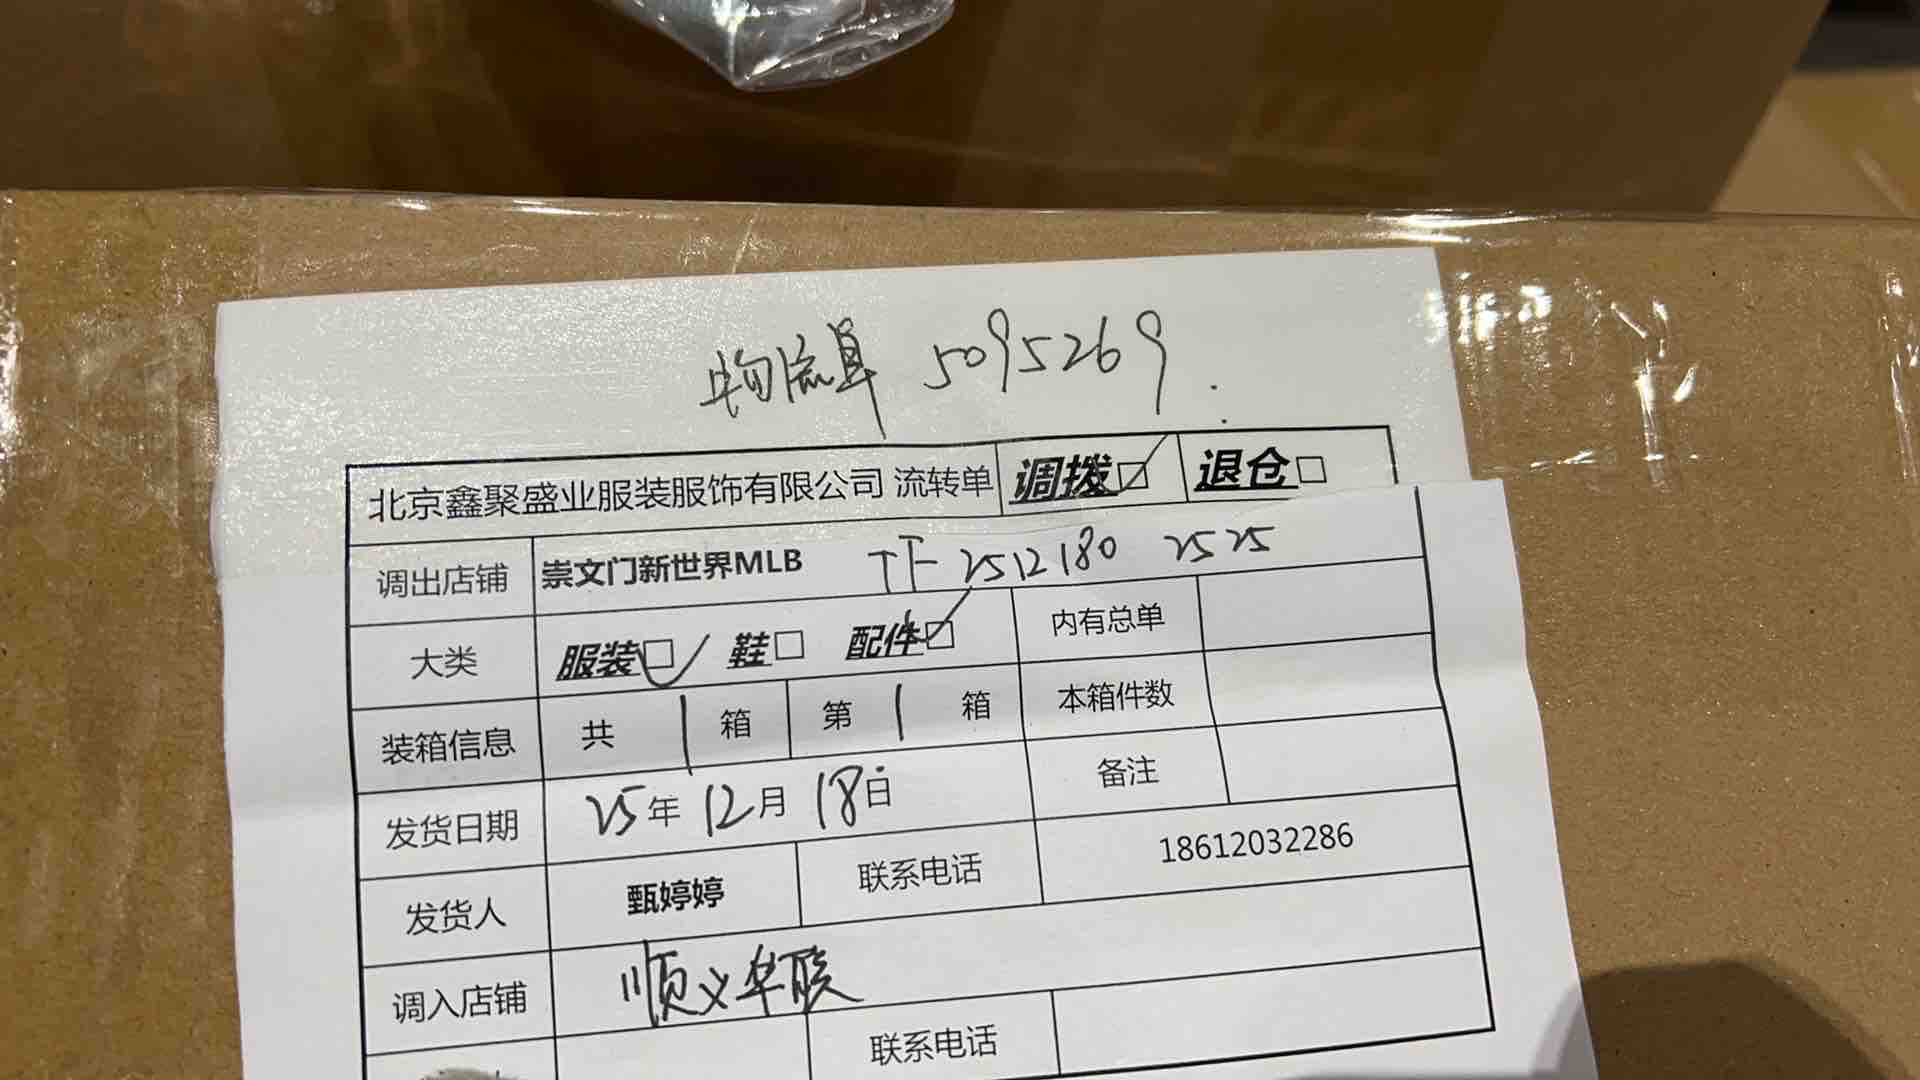 物流单 5095269.
北京鑫聚盛业服装服饰有限公司 流转单 调拨□ 退仓□
调出店铺 崇文门新世界MLB TF 2512180 2525
大类 服装□ 鞋□ 配件□ 内有总单
装箱信息 共 1 箱 第 1 箱 本箱件数
发货日期 25年 12月 18日 备注
发货人 甄婷婷 联系电话 18612032286
调入店铺 顺义华联
联系电话